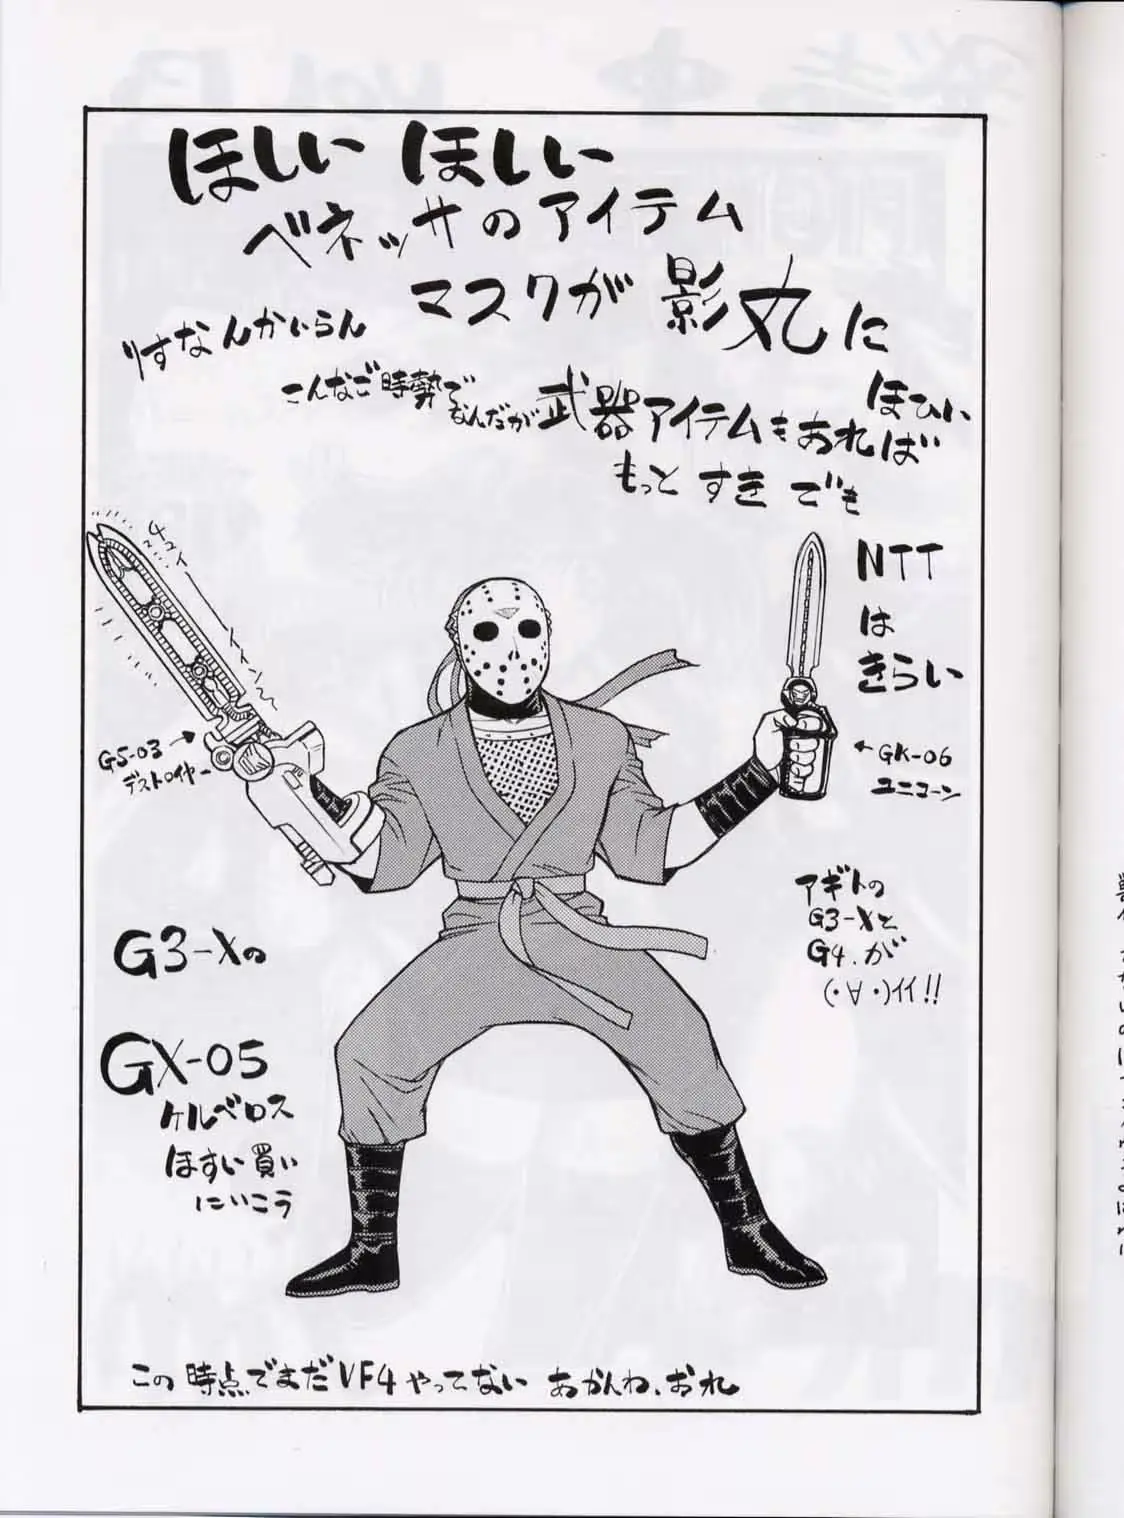 ほしい ほしい
ベネッサのアイテム
マスクが 影丸に
ほひい
りすなんかいらん
こんなご時勢で
なんだが 武器アイテムもあれば
もっと すき でも
NTT
は
きらい
チュイーーー
G5-03 →
デストロイヤー
← GK-06
ユニコーン
アギトの
G3-Xと
G4.が
(・∀・)イイ!!
G3-Xの
GX-05
ケルベロス
ほすい 買い
にいこう
この時点でまだVF4やってない あかんね、おれ